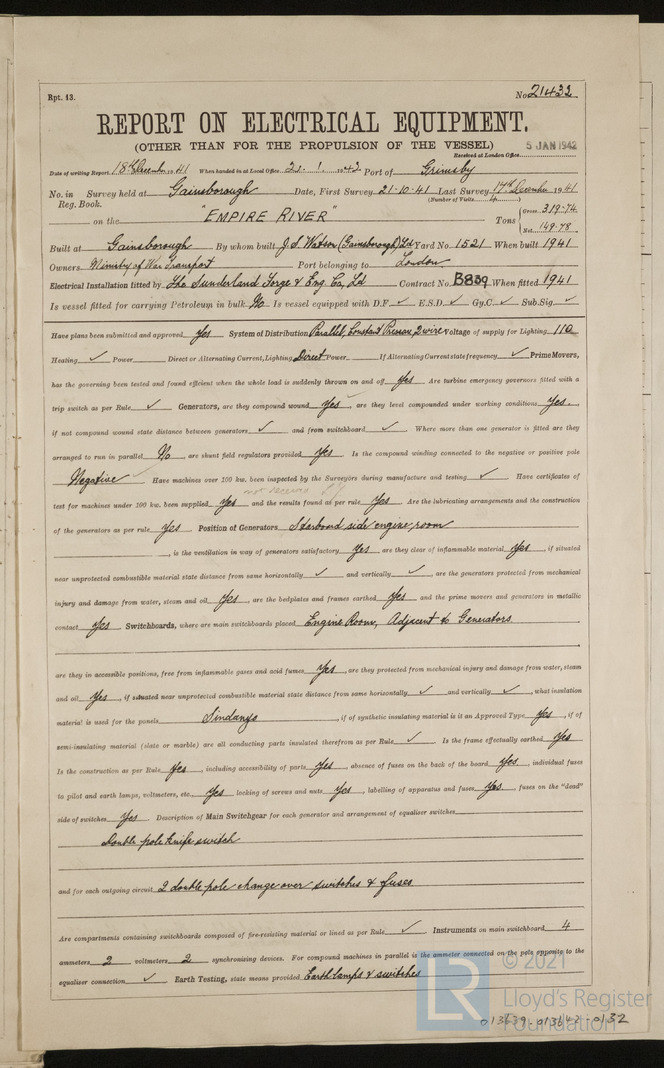 Rpt. 13. No. 21432
REPORT ON ELECTRICAL EQUIPMENT.
(OTHER THAN FOR THE PROPULSION OF THE VESSEL) 5 JAN 1942
Received at London Office
Date of writing Report 18th December 1941 When handed in at Local Office 2. 1. 1942 Port of Grimsby
No. in Survey held at Gainsborough Date, First Survey 21.10.41 Last Survey 17th December 1941
Reg. Book. (Number of Visits 4)
on the "EMPIRE RIVER" Tons { Gross 319.74 Net 149.78
Built at Gainsborough By whom built J.S. Watson (Gainsborough) Ld Yard No. 1521 When built 1941
Owners Ministry of War Transport Port belonging to London
Electrical Installation fitted by The Sunderland Forge & Eng. Co, Ld Contract No. B839 When fitted 1941
Is vessel fitted for carrying Petroleum in bulk No Is vessel equipped with D.F. ✓ E.S.D. ✓ Gy.C. ✓ Sub.Sig. ✓
Have plans been submitted and approved Yes System of Distribution Parallel, Constant Pressure, 2 wire Voltage of supply for Lighting 110
Heating ✓ Power Direct or Alternating Current, Lighting Direct Power If Alternating Current state frequency ✓ Prime Movers,
has the governing been tested and found efficient when the whole load is suddenly thrown on and off Yes Are turbine emergency governors fitted with a
trip switch as per Rule ✓ Generators, are they compound wound Yes, are they level compounded under working conditions Yes,
if not compound wound state distance between generators ✓ and from switchboard ✓ Where more than one generator is fitted are they
arranged to run in parallel No, are shunt field regulators provided Yes Is the compound winding connected to the negative or positive pole
Negative Have machines over 100 kw. been inspected by the Surveyors during manufacture and testing ✓ Have certificates of
not received
test for machines under 100 kw. been supplied Yes and the results found as per rule Yes. Are the lubricating arrangements and the construction
of the generators as per rule Yes Position of Generators Starboard side engine room
, is the ventilation in way of generators satisfactory Yes are they clear of inflammable material Yes, if situated
near unprotected combustible material state distance from same horizontally ✓ and vertically ✓, are the generators protected from mechanical
injury and damage from water, steam and oil Yes, are the bedplates and frames earthed Yes and the prime movers and generators in metallic
contact Yes. Switchboards, where are main switchboards placed Engine Room, Adjacent to Generators
are they in accessible positions, free from inflammable gases and acid fumes Yes, are they protected from mechanical injury and damage from water, steam
and oil Yes, if situated near unprotected combustible material state distance from same horizontally ✓ and vertically ✓, what insulation
material is used for the panels Sindanyo, if of synthetic insulating material is it an Approved Type Yes, if of
semi-insulating material (slate or marble) are all conducting parts insulated therefrom as per Rule ✓ Is the frame effectually earthed Yes
Is the construction as per Rule Yes, including accessibility of parts Yes, absence of fuses on the back of the board Yes, individual fuses
to pilot and earth lamps, voltmeters, etc., Yes locking of screws and nuts Yes, labelling of apparatus and fuses Yes, fuses on the "dead"
side of switches Yes. Description of Main Switchgear for each generator and arrangement of equaliser switches
Double pole knife switch
and for each outgoing circuit 2 double pole change over switches & fuses
Are compartments containing switchboards composed of fire-resisting material or lined as per Rule ✓ Instruments on main switchboard 4
ammeters 2 voltmeters 2 synchronising devices. For compound machines in parallel is the ammeter connected on the pole opposite to the
equaliser connection ✓ Earth Testing, state means provided Earth lamps & switches
LR © 2021
Lloyd's Register
Foundation
013639-013642-0132